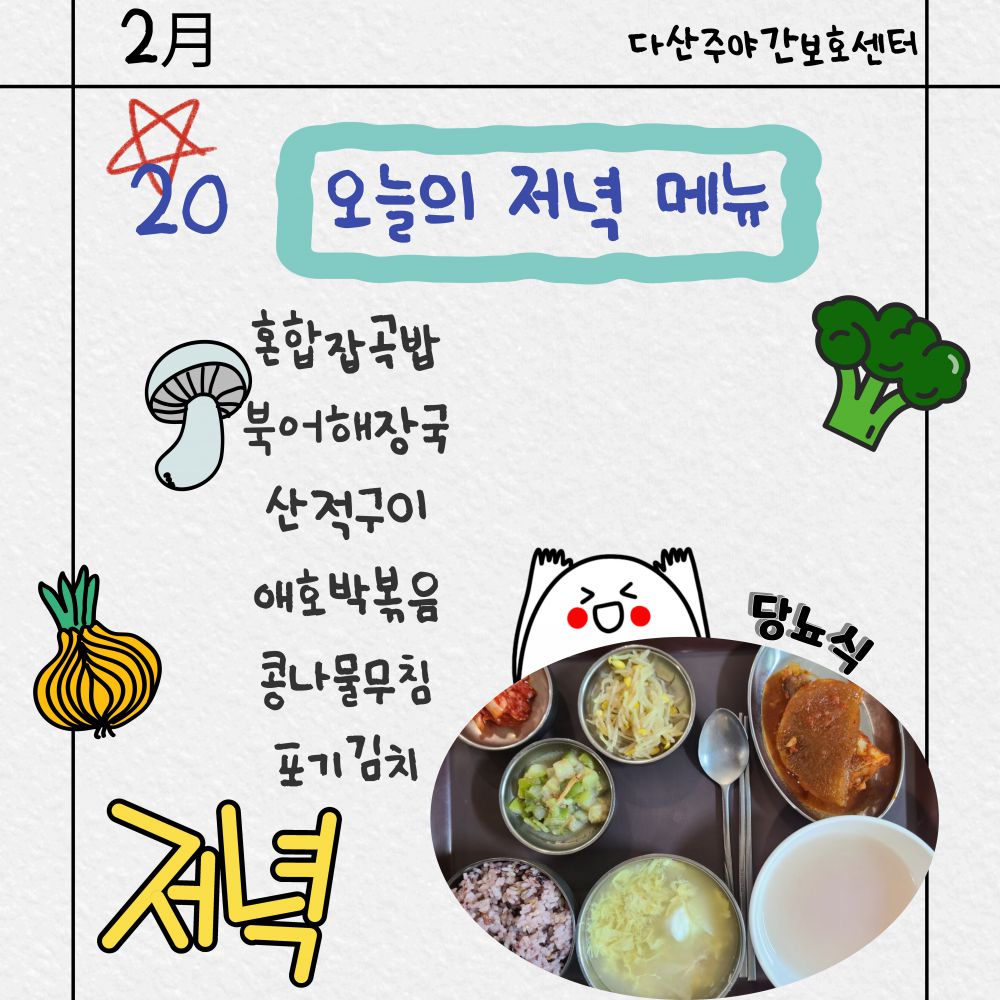 2月
다산주야간보호센터
20
오늘의 저녁 메뉴
혼합잡곡밥
북어해장국
산적구이
애호박볶음
콩나물무침
포기김치
당뇨식
저녁